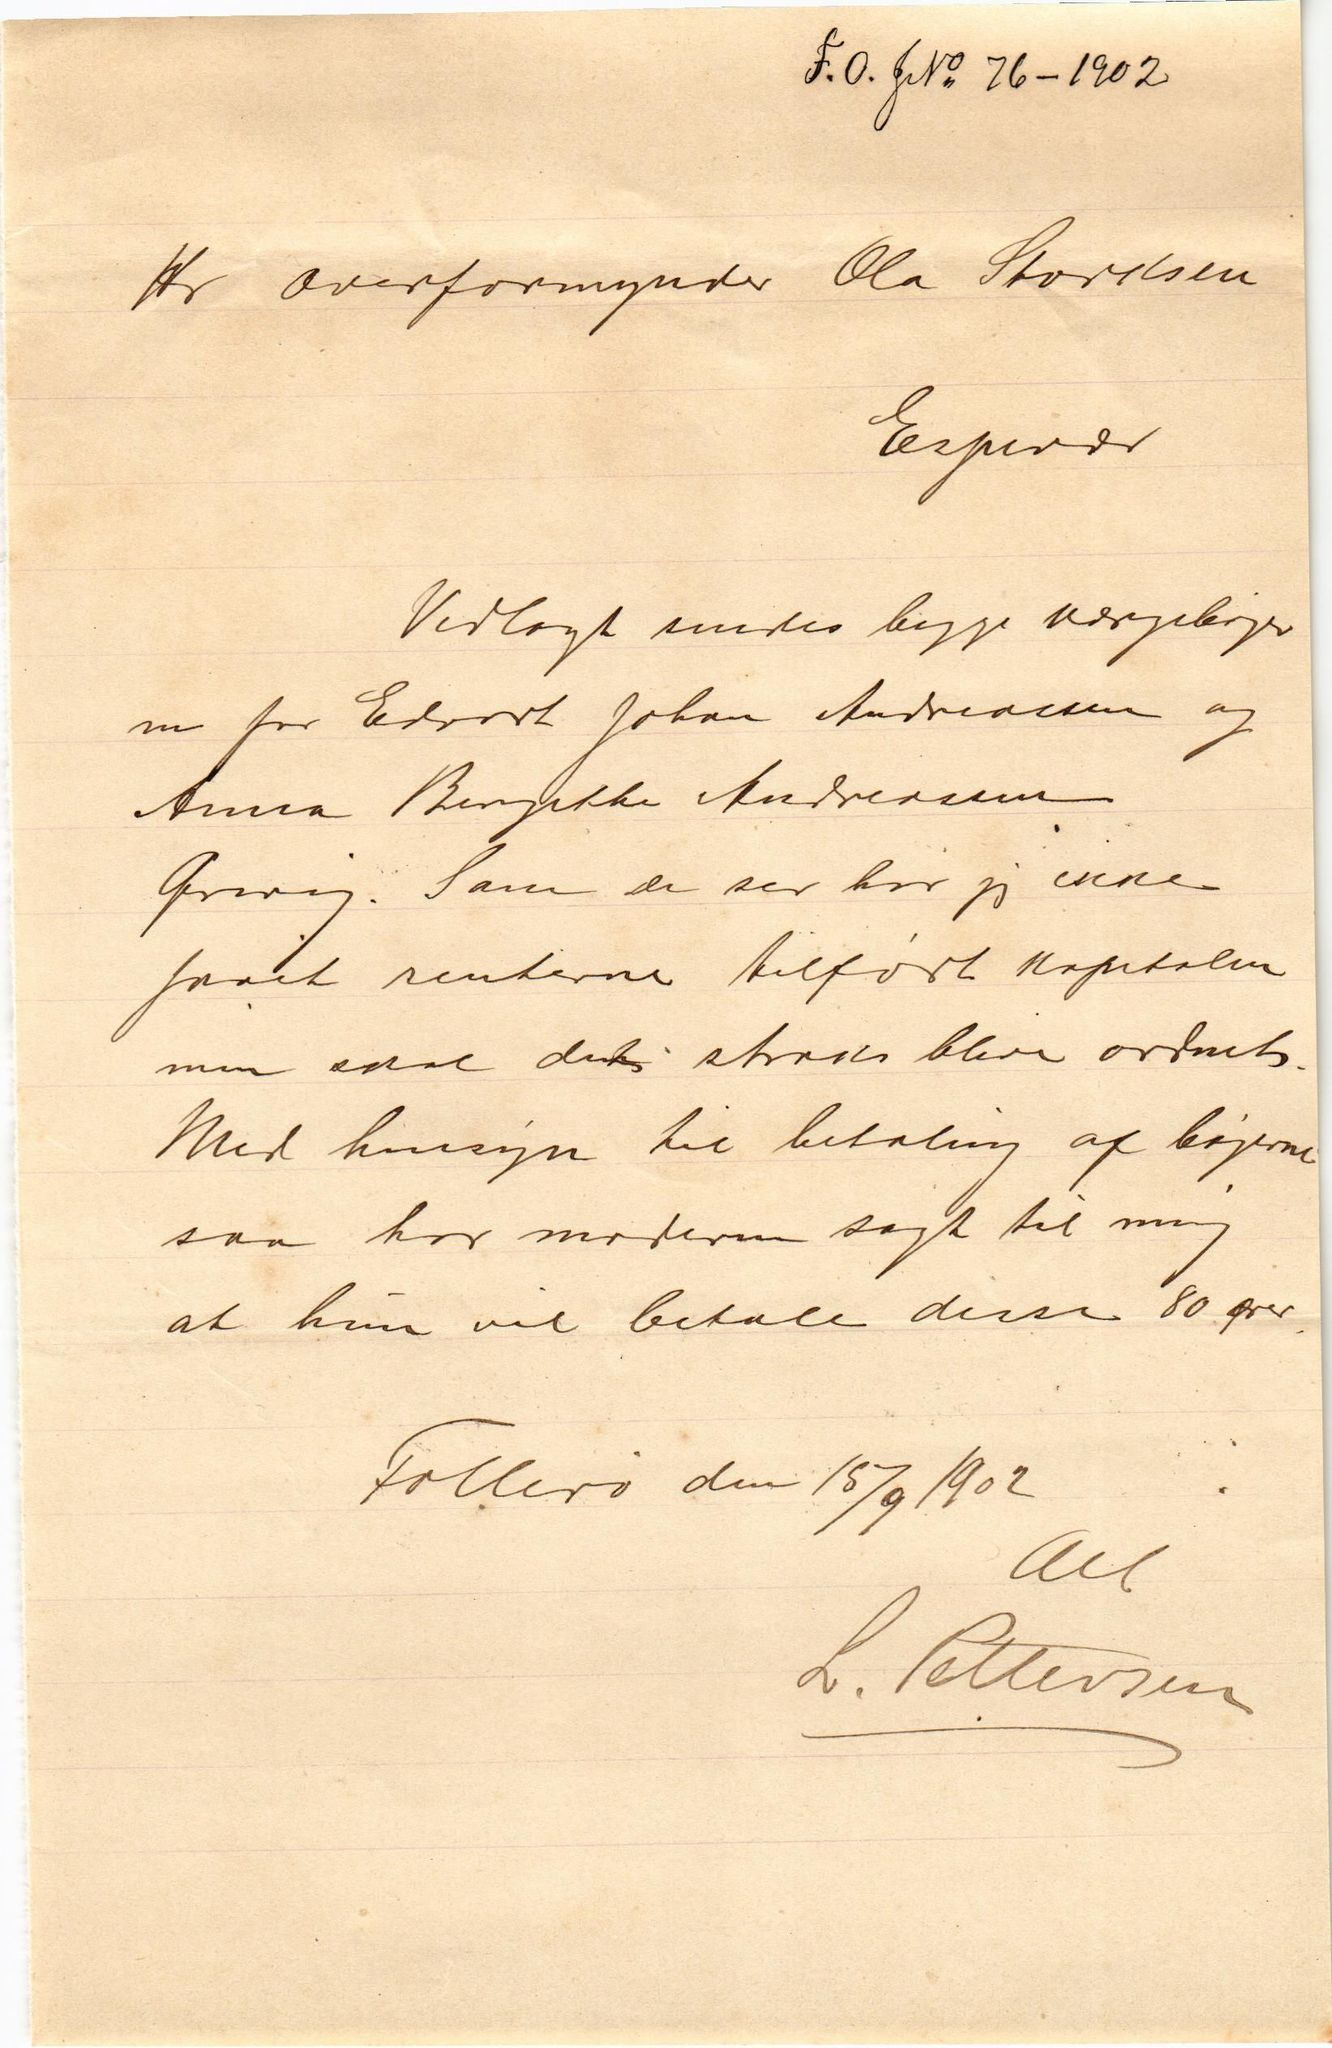 F.O. JNo 76-1902
Hr overformynder Ola Storksen
Espevær
Vedlagt sendes begge værgebøger
ne for Edvart Johan Andreassen og
Anna Bergitte Andreassen
Grevig. Som de ser har jeg ikke
faaet renterne tilført kapitalen
men skal det straks blive ordnet.
Med hensyn til betaling af bøgerne
saa har moderen sagt til mig
at hun vil betale disse 80 ører.
Follerö den 15/9 1902
L. Pettersen